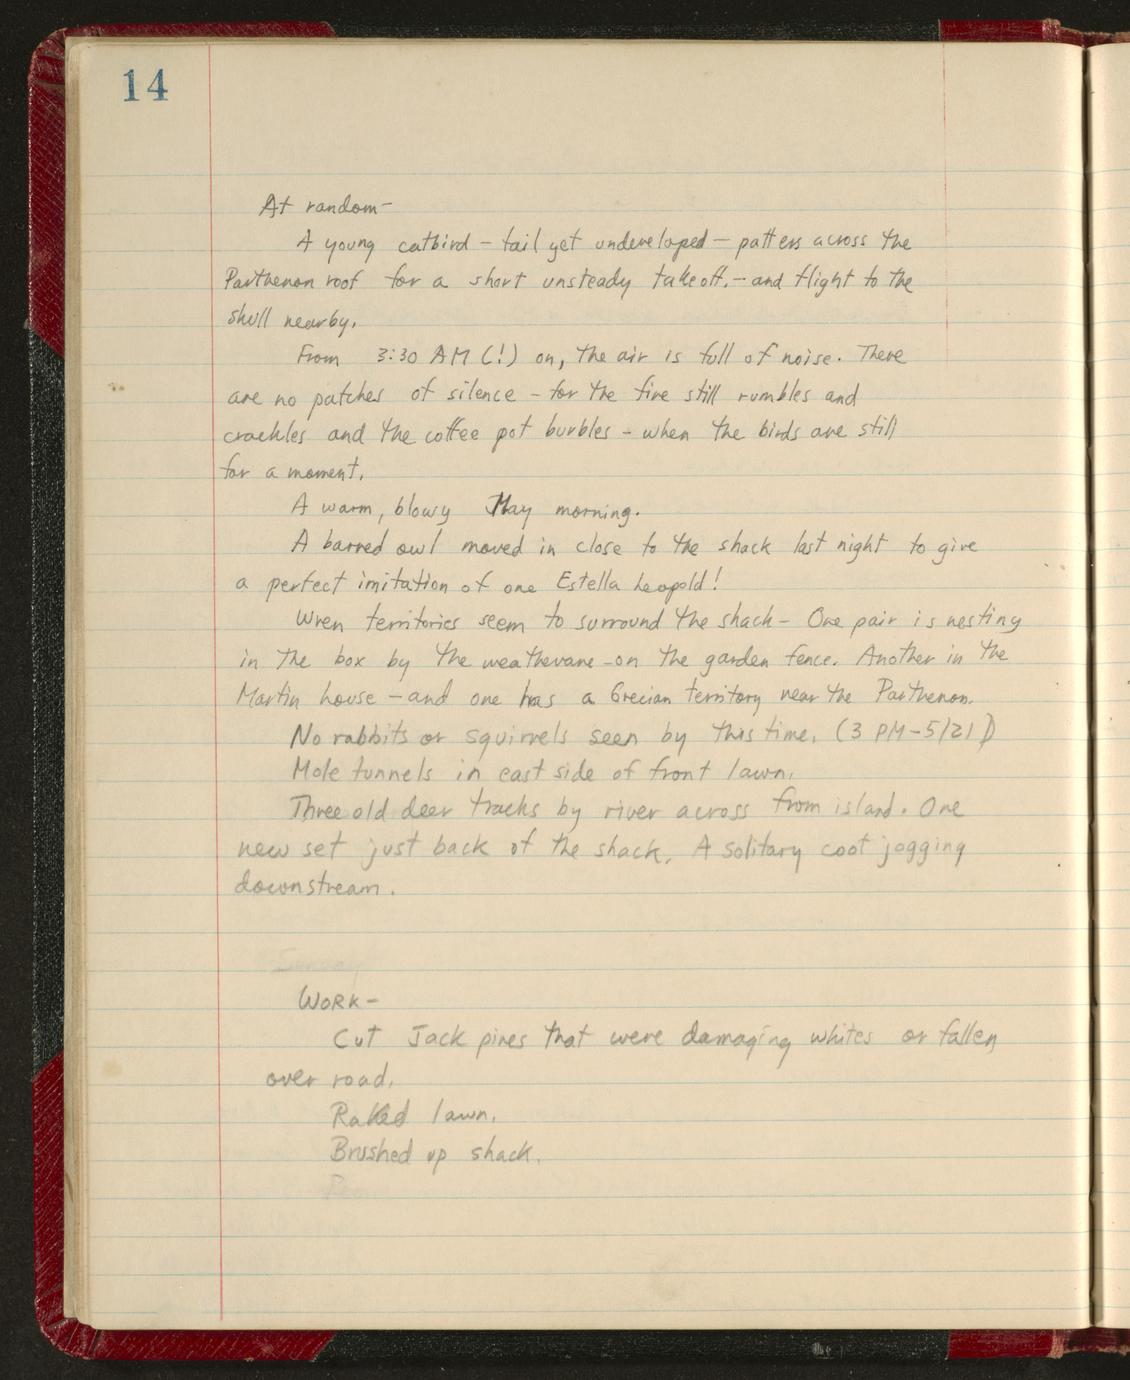 14
At random-
A young catbird - tail yet undeveloped - patters across the
Parthenon roof for a short unsteady takeoff. - and flight to the
skull nearby.
From 3:30 AM (!) on, the air is full of noise. There
are no patches of silence - for the fire still rumbles and
crackles and the coffee pot burbles - when the birds are still
for a moment.
A warm, blowy May morning.
A barred owl moved in close to the shack last night to give
a perfect imitation of one Estella Leopold!
Wren territories seem to surround the shack - One pair is nesting
in the box by the weathervane - on the garden fence. Another in the
Martin house - and one has a Grecian territory near the Parthenon.
No rabbits or squirrels seen by this time. (3 PM-5/21)
Mole tunnels in east side of front lawn.
Three old deer tracks by river across from island. One
new set just back of the shack. A solitary coot jogging
downstream.
WORK-
Cut Jack pines that were damaging whites or fallen
over road.
Raked lawn.
Brushed up shack.